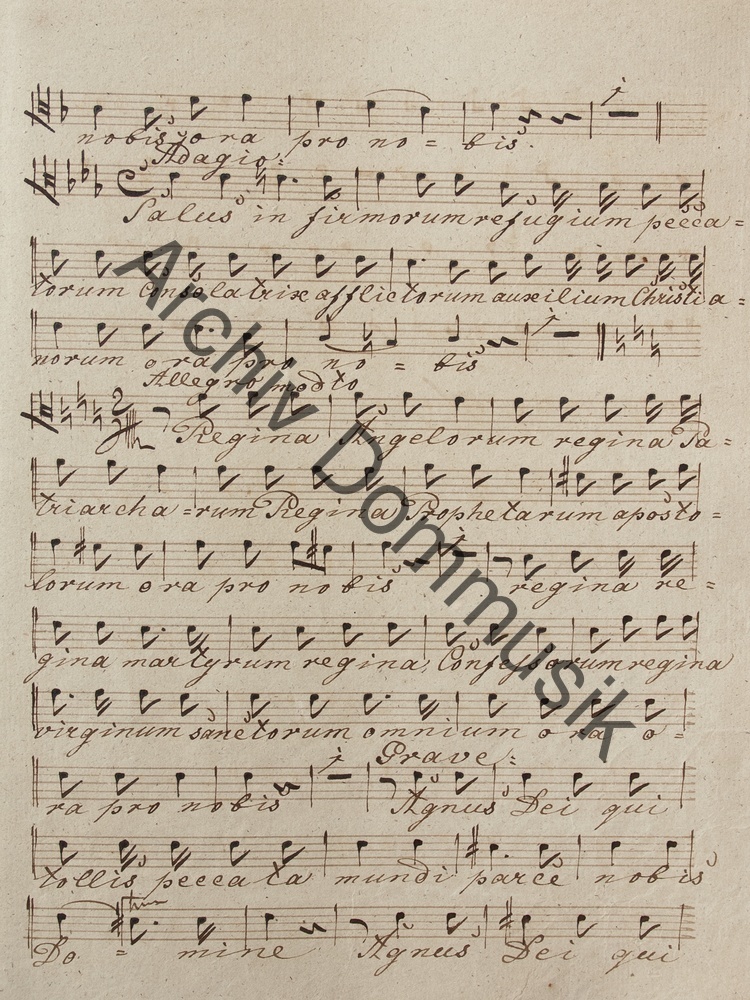 nobis, ora pro no = bis.
Adagio:
Salus in firmorum refugium pecca =
torum Consolatrix afflictorum auxilium Christia =
norum ora pro no = bis
Allegro modto
Regina Angelorum regina Pa =
triarcha = rum Regina Prophetarum aposto =
lorum ora pro nobis regina re =
gina martyrum regina Confessorum regina
virginum sanctorum omnium ora o =
Grave:
ra pro nobis Agnus Dei qui
tollis peccata mundi parce nobis
Do = mine Agnus Dei qui
Archiv Dommusik